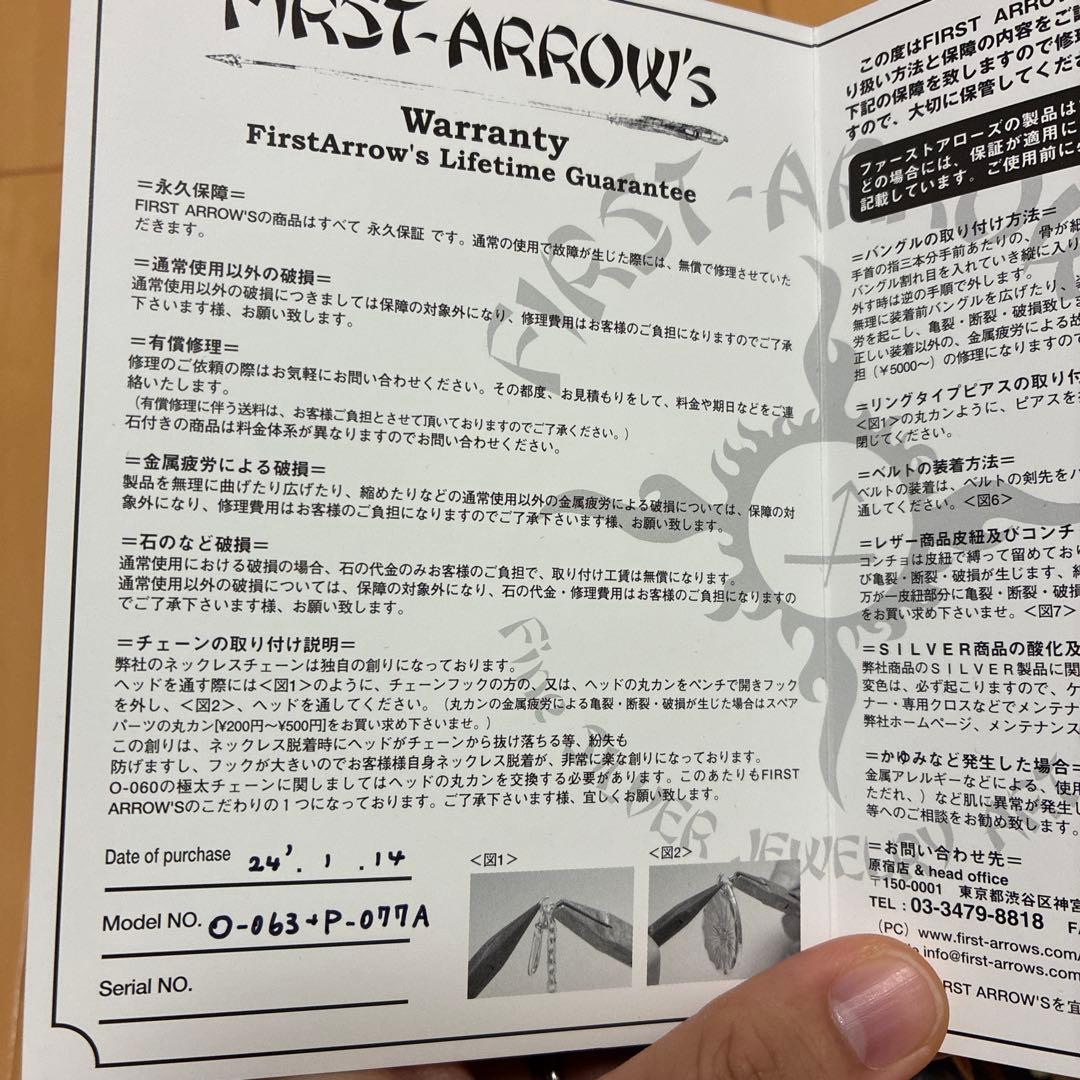 FIRST-ARROW's
Warranty
FirstArrow's Lifetime Guarantee
＝永久保障＝
FIRST ARROW'Sの商品はすべて 永久保証 です。通常の使用で故障が生じた際には、無償で修理させていた
だきます。
＝通常使用以外の破損＝
通常使用以外の破損につきましては保障の対象外になり、修理費用はお客様のご負担になりますのでご了承
下さいます様、お願い致します。
＝有償修理＝
修理のご依頼の際はお気軽にお問い合わせください。その都度、お見積もりをして、料金や期日などをご連
絡いたします。
（有償修理に伴う送料は、お客様ご負担とさせて頂いておりますのでご了承ください。）
石付きの商品は料金体系が異なりますのでお問い合わせください。
＝金属疲労による破損＝
製品を無理に曲げたり広げたり、縮めたりなどの通常使用以外の金属疲労による破損については、保障の対
象外になり、修理費用はお客様のご負担になりますのでご了承下さいます様、お願い致します。
＝石のなど破損＝
通常使用における破損の場合、石の代金のみお客様のご負担で、取り付け工賃は無償になります。
通常使用以外の破損については、保障の対象外になり、石の代金・修理費用はお客様のご負担になりますの
でご了承下さいます様、お願い致します。
＝チェーンの取り付け説明＝
弊社のネックレスチェーンは独自の創りになっております。
ヘッドを通す際には＜図1＞のように、チェーンフックの方の、又は、ヘッドの丸カンをペンチで開きフック
を外し、＜図2＞、ヘッドを通してください。（丸カンの金属疲労による亀裂・断裂・破損が生じた場合はスペア
パーツの丸カン[¥200円〜¥500円]をお買い求め下さいませ。）
この創りは、ネックレス脱着時にヘッドがチェーンから抜け落ちる等、紛失も
防げますし、フックが大きいのでお客様様自身ネックレス脱着が、非常に楽な創りになっております。
O-060の極太チェーンに関しましてはヘッドの丸カンを交換する必要があります。このあたりもFIRST
ARROW'Sのこだわりの１つになっております。ご了承下さいます様、宜しくお願い致します。
Date of purchase 24'. 1 .14
Model NO. O-063+P-077A
Serial NO.
＜図1＞
＜図2＞
この度はFIRST ARROW
り扱い方法と保障の内容をご
下記の保障を致しますので修
すので、大切に保管してくださ
ファーストアローズの製品は
どの場合には、保証が適用に
記載しています。ご使用前に
＝バングルの取り付け方法＝
手首の指三本分手前あたりの、骨が
バングル割れ目を入れていき縦に入り
外す時は逆の手順で外します。
無理に装着前バングルを広げたり、
労を起こし、亀裂・断裂・破損致しま
正しい装着以外の、金属疲労による故
担（￥5000〜）の修理になりますので
＝リングタイプピアスの取り付
＜図1＞の丸カンように、ピアスを
閉じてください。
＝ベルトの装着方法＝
ベルトの装着は、ベルトの剣先をバ
通してください。＜図6＞
＝レザー商品皮紐及びコンチ
コンチョは皮紐で縛って留めており
び亀裂・断裂・破損が生じます、
万が一皮紐部分に亀裂・断裂・破損
をお買い求め下さいませ。＜図7＞
＝ＳＩＬＶＥＲ商品の酸化及
弊社商品のＳＩＬＶＥＲ製品に関
変色は、必ず起こりますので、ケ
ナー・専用クロスなどでメンテナ
弊社ホームページ、メンテナンス
＝かゆみなど発生した場合＝
金属アレルギーなどによる、使用
ただれ、）など肌に異常が発生し
等へのご相談をお勧め致します。
＝お問い合わせ先＝
原宿店 & head office
〒150-0001 東京都渋谷区神宮
TEL : 03-3479-8818
(PC) www.first-arrows.com
info@first-arrows.com
FIRST ARROW'Sを
FIRST-ARROW
Fine SILVER JEWELRY